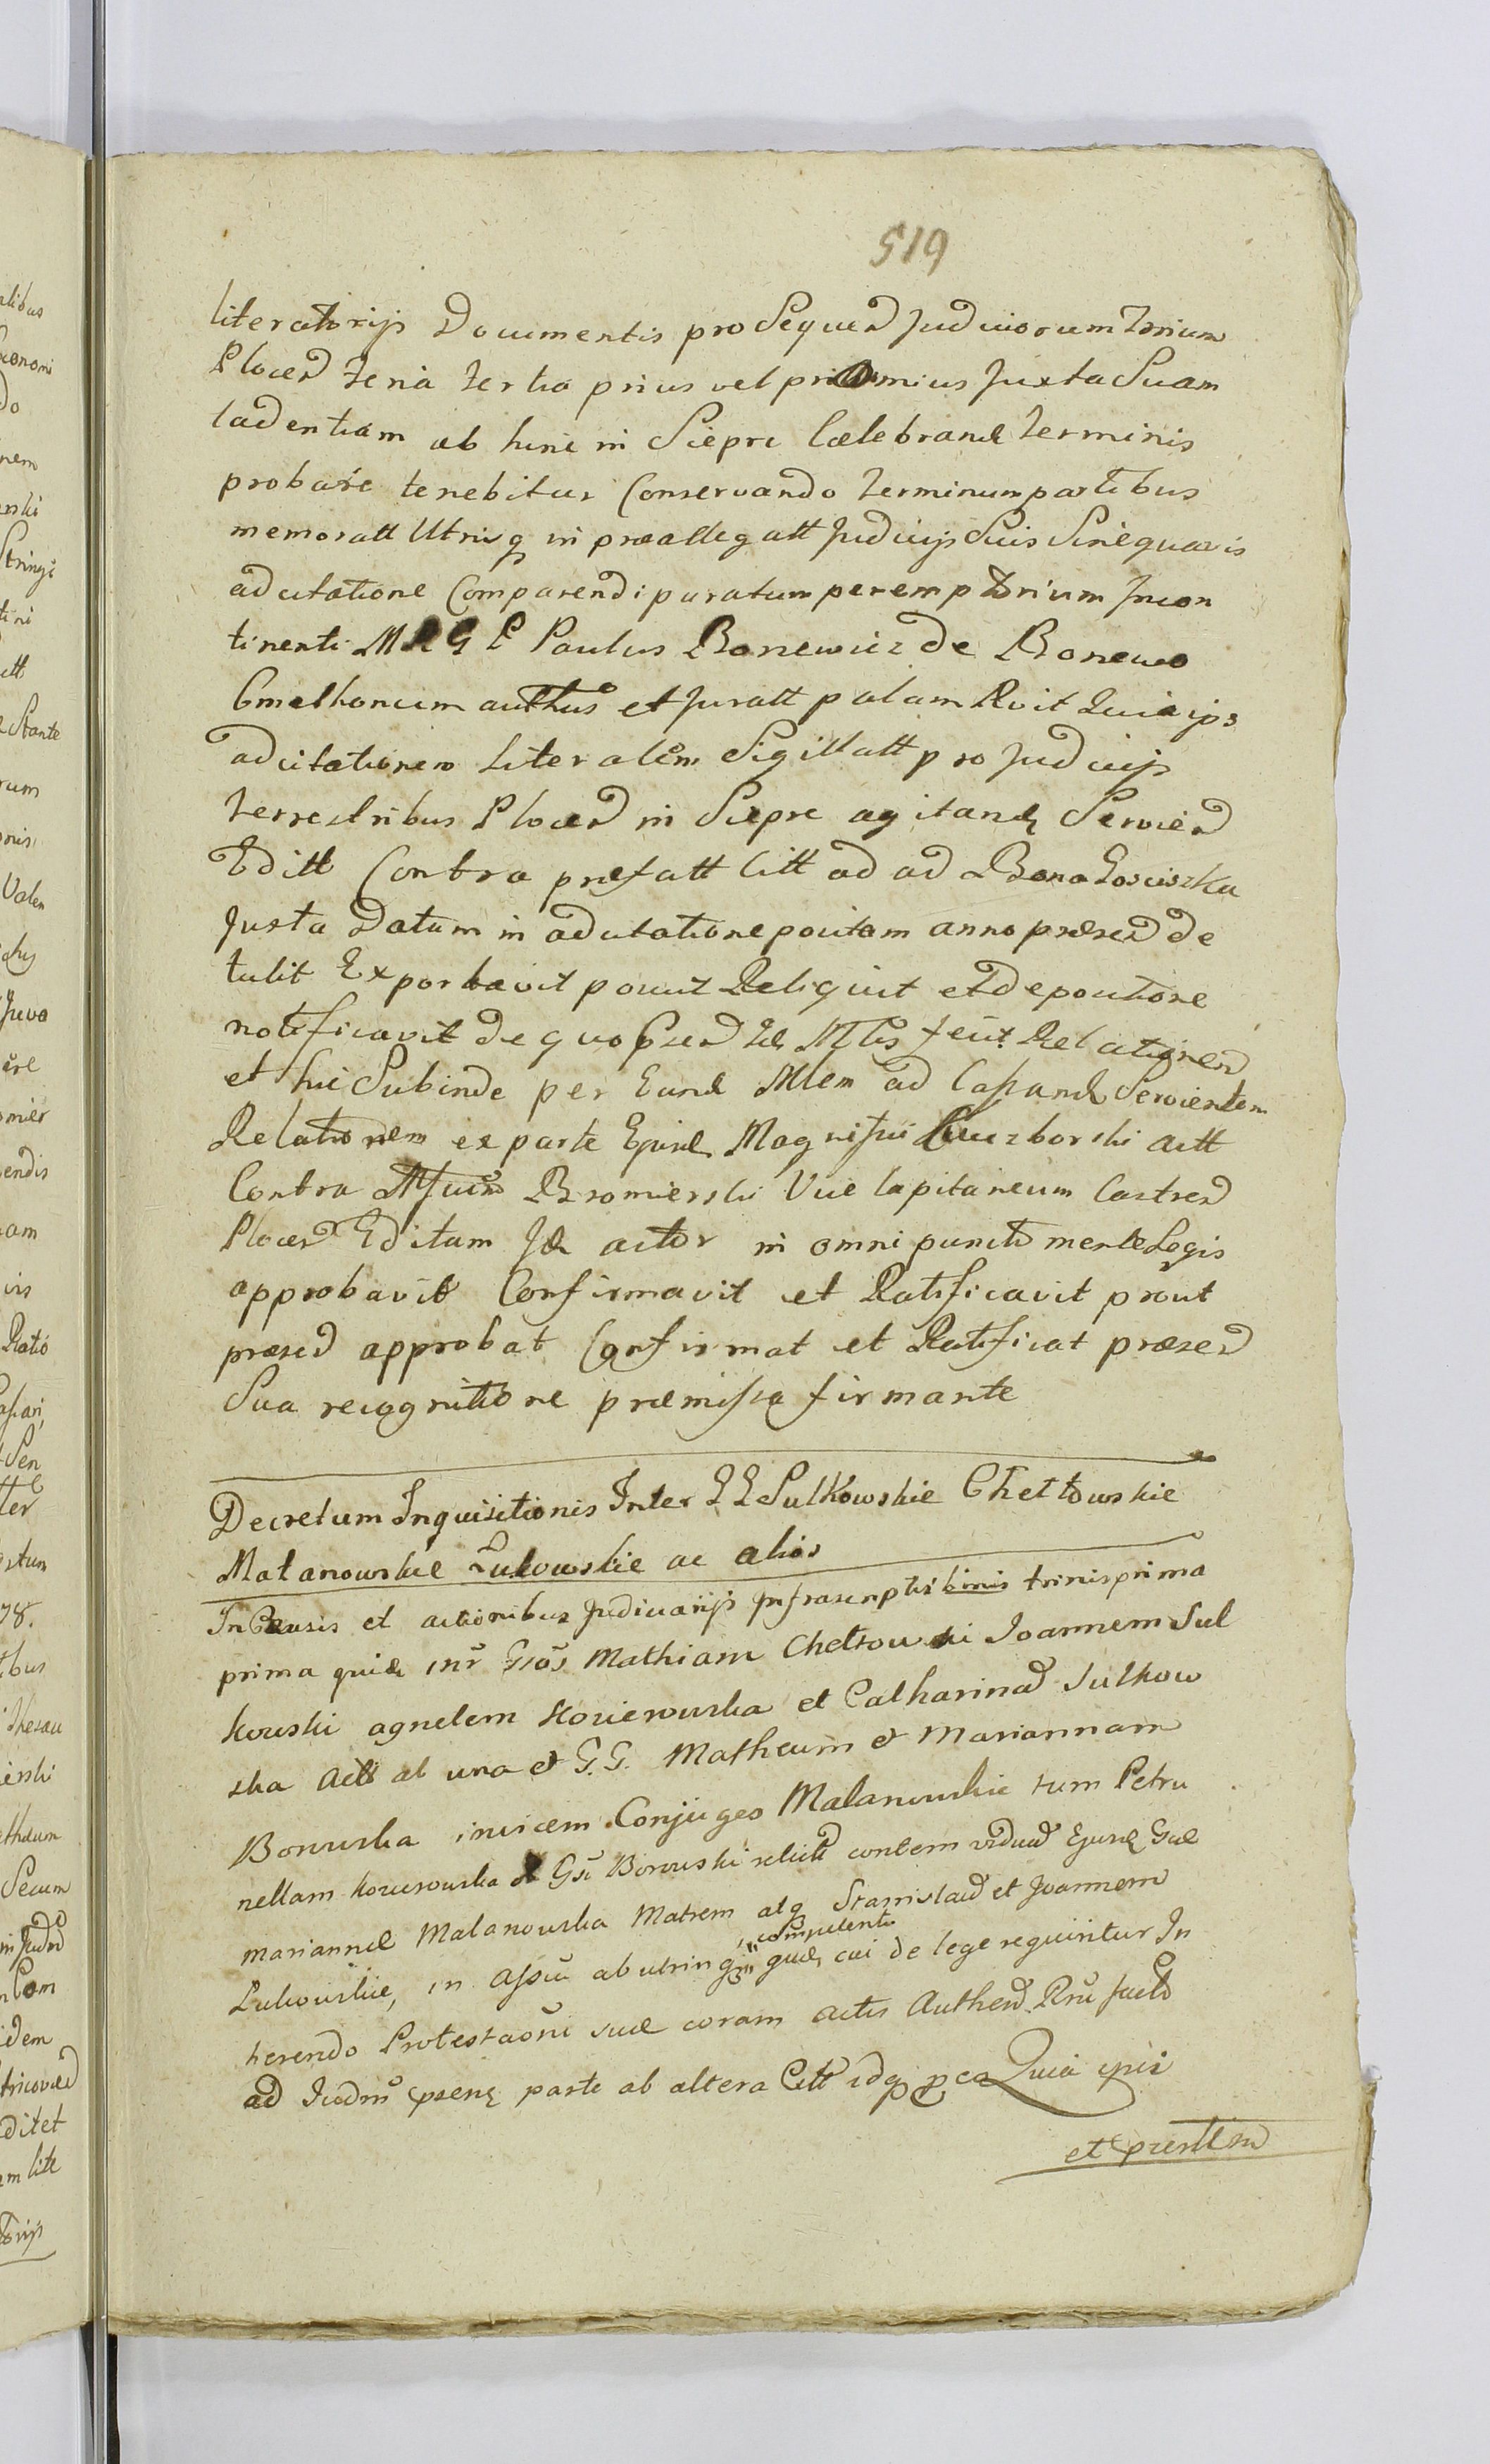 519
literatoriis Documentis pro Sequen Judiciorum Trium
Plocen feria tertia prius vel proximius Juxta Suam
Cadentiam ab hinc in Sieprc Cœlebrand Terminis
probare tenebitur Conservando Terminum partibus
memoratt Utrisq in præallegatt Judicijs Suis Sine quavis
adcitatione Comparendi paratum peremptorium Incon
tinenti M G P Paulus Bonewicz de Bonewo
Gmelhoncum authus et Juratt palam Rvit Quia ips
adcitationem Literalem Sigillatt pro Judicijs
Terrestribus Plocen in Sieprc agitand Servien
Editt Contra præfatt Citt ad ad Bona Gosciszka
Juxta Datam in adcitatione positam anno præsen de
tulit Exportavit posuit Reliquit et de positione
notificavit de quo Præsen Id Mlis fecit Relationen
et hic Subinde per Eund Mlem ad Cassand Servientem
Relationem ex parte Ejusd Magnifici Kuczborski actt
Contra Mfcum Bromierski Vice Capitaneum Castren
Plocen Editam Id actor in omni puncto mente Legis
approbavit Confirmavit et Ratificavit prout
præsen approbat Confirmat et Ratificat præsen
Sua recognitione præmissa firmante
Decretum Inquisitionis Inter GG Sulkowskie Chełtowskie
Malanowskie Lukowskie ac alios
In Causis et actionibus Judiciarijs Infrascriptis binis trinis prima
prima quid inr Gsos Mathiam Chełtowski Joannem Sul
kowski agnetem Koziewuska et Catharinam Sulkow
ska Actt ab una et G.G. Matheum et Mariannam
Borowska invicem Conjuges Malanowskie tum Petru
nellam Koziewuska Gsi Borowski relictt contem viduam Ejusd Gæ
Mariannæ Malanowska Matrem atq Stanislaum et Joannem
Lukowskie, in Assa ab utrinq quid, cui de lege requiritur In
competenti
herendo Protestaoni suæ coram actis Authen Rm facto
ad Judm præns parte ab altera Citt idq p ea Quia ipsi
et præsten